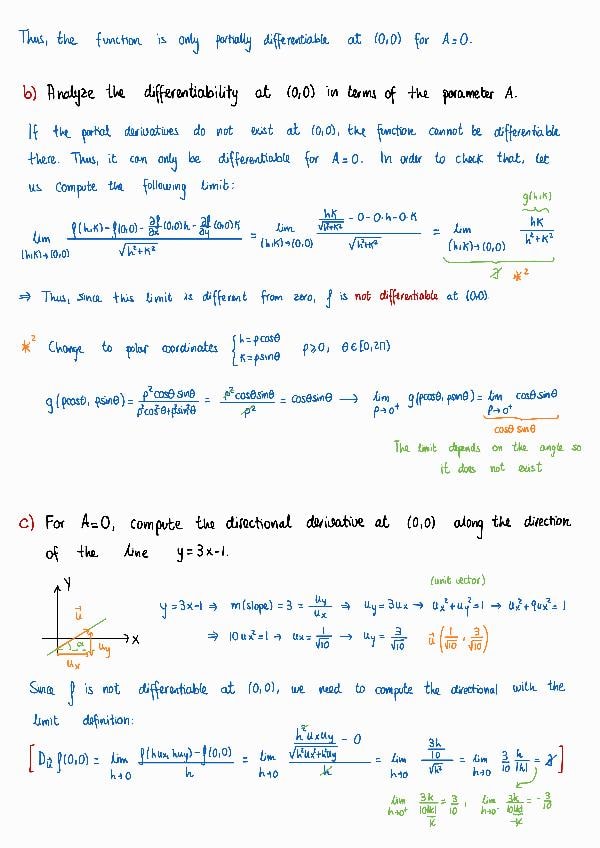 Thus, the function is only partially differentiable at (0,0) for A=0.
b) Analyze the differentiability at (0,0) in terms of the parameter A.
If the partial derivatives do not exist at (0,0), the function cannot be differentiable
there. Thus, it can only be differentiable for A=0. In order to check that, let
us compute the following limit:
g(h,k)
lim (h,k)→(0,0) (f(h,k) - f(0,0) - ∂f/∂x (0,0)h - ∂f/∂y (0,0)k) / √(h²+k²) = lim (h,k)→(0,0) (hk/√(h²+k²) - 0 - 0·h - 0·k) / √(h²+k²) = lim (h,k)→(0,0) hk/(h²+k²)
∄ *²
⇒ Thus, since this limit is different from zero, f is not differentiable at (0,0)
*² Change to polar coordinates { h=ρcosθ k=ρsinθ ρ≥0, θ∈[0,2π)
g(ρcosθ, ρsinθ) = ρ²cosθ sinθ / (ρ²cos²θ+ρ²sin²θ) = ρ²cosθsinθ / ρ² = cosθsinθ → lim ρ→0⁺ g(ρcosθ, ρsinθ) = lim ρ→0⁺ cosθsinθ
cosθ sinθ
The limit depends on the angle so
it does not exist
c) For A=0, compute the directional derivative at (0,0) along the direction
of the line y=3x-1.
(unit vector)
y=3x-1 → m(slope) = 3 = uy/ux → uy=3ux → ux²+uy²=1 → ux²+9ux²=1
⇒ 10ux²=1 → ux = 1/√10 → uy = 3/√10 u⃗(1/√10, 3/√10)
y u⃗ α uy x ux
Since f is not differentiable at (0,0), we need to compute the directional with the
limit definition:
[ Du⃗ f(0,0) = lim h→0 (f(hux, huy) - f(0,0)) / h = lim h→0 (h²uxuy/√(h²ux²+h²uy²) - 0) / h = lim h→0 (3h/10) / √h² = lim h→0 3/10 h/|h| = ∄ ]
lim h→0⁺ 3h/10|h| = 3/10, lim h→0⁻ 3h/10|h| = -3/10
h -h